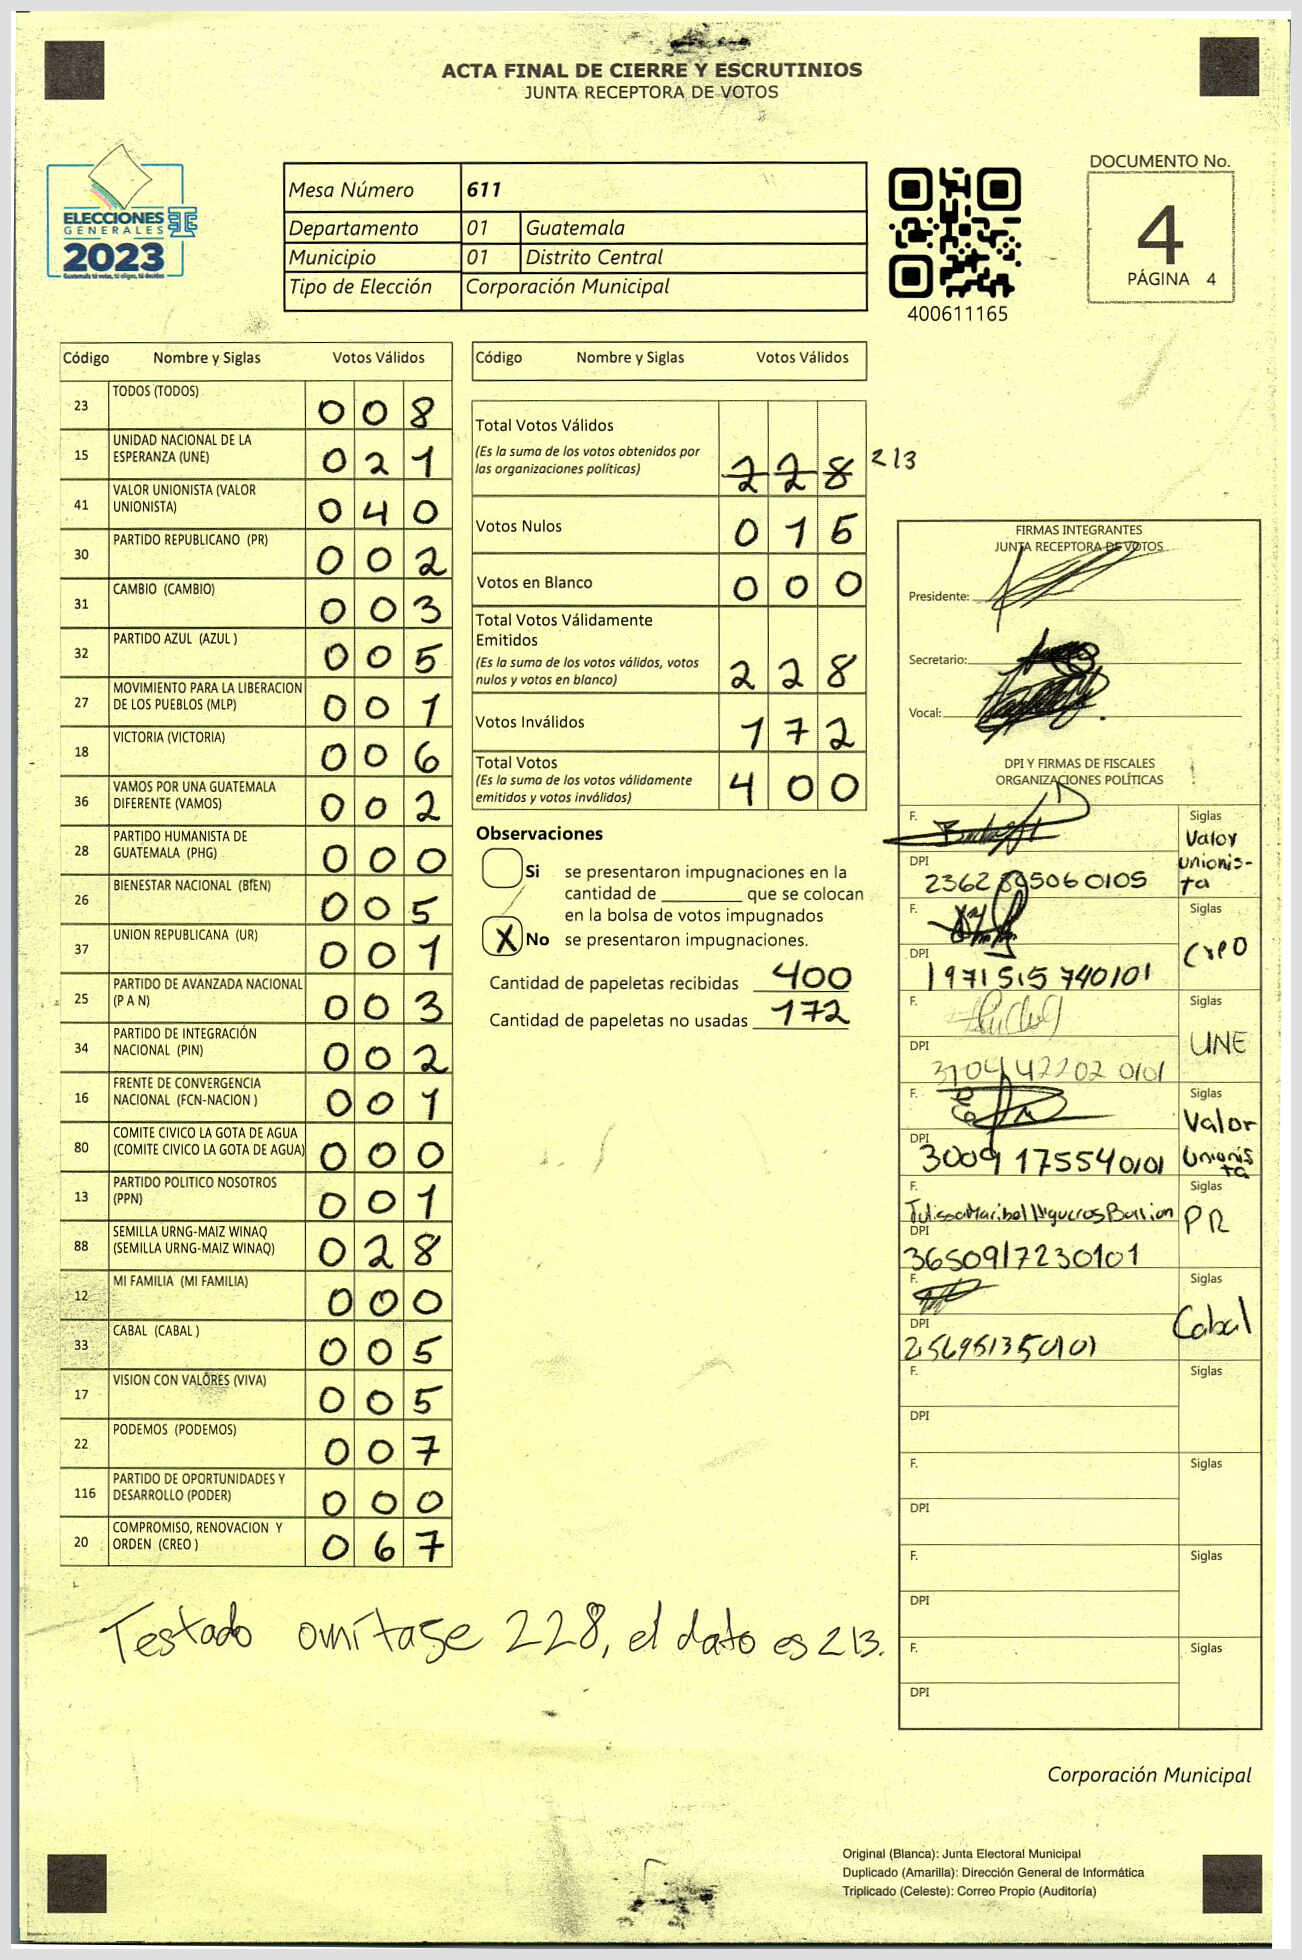 ACTA FINAL DE CIERRE Y ESCRUTINIOS
JUNTA RECEPTORA DE VOTOS
ELECCIONES
GENERALES
2023
Guatemala tú votas, tú eliges, tú decides
Mesa Número 611
Departamento 01 Guatemala
Municipio 01 Distrito Central
Tipo de Elección Corporación Municipal
400611165
DOCUMENTO No.
4
PÁGINA 4
Código Nombre y Siglas Votos Válidos
23 TODOS (TODOS) 0 0 8
15 UNIDAD NACIONAL DE LA
ESPERANZA (UNE) 0 2 1
41 VALOR UNIONISTA (VALOR
UNIONISTA) 0 4 0
30 PARTIDO REPUBLICANO (PR) 0 0 2
31 CAMBIO (CAMBIO) 0 0 3
32 PARTIDO AZUL (AZUL ) 0 0 5
27 MOVIMIENTO PARA LA LIBERACION
DE LOS PUEBLOS (MLP) 0 0 1
18 VICTORIA (VICTORIA) 0 0 6
36 VAMOS POR UNA GUATEMALA
DIFERENTE (VAMOS) 0 0 2
28 PARTIDO HUMANISTA DE
GUATEMALA (PHG) 0 0 0
26 BIENESTAR NACIONAL (BIEN) 0 0 5
37 UNION REPUBLICANA (UR) 0 0 1
25 PARTIDO DE AVANZADA NACIONAL
(P A N) 0 0 3
34 PARTIDO DE INTEGRACIÓN
NACIONAL (PIN) 0 0 2
16 FRENTE DE CONVERGENCIA
NACIONAL (FCN-NACION ) 0 0 1
80 COMITE CIVICO LA GOTA DE AGUA
(COMITE CIVICO LA GOTA DE AGUA) 0 0 0
13 PARTIDO POLITICO NOSOTROS
(PPN) 0 0 1
88 SEMILLA URNG-MAIZ WINAQ
(SEMILLA URNG-MAIZ WINAQ) 0 2 8
12 MI FAMILIA (MI FAMILIA) 0 0 0
33 CABAL (CABAL ) 0 0 5
17 VISION CON VALORES (VIVA) 0 0 5
22 PODEMOS (PODEMOS) 0 0 7
116 PARTIDO DE OPORTUNIDADES Y
DESARROLLO (PODER) 0 0 0
20 COMPROMISO, RENOVACION Y
ORDEN (CREO ) 0 6 7
Código Nombre y Siglas Votos Válidos
Total Votos Válidos
(Es la suma de los votos obtenidos por
las organizaciones políticas) 2 2 8 213
Votos Nulos 0 1 5
Votos en Blanco 0 0 0
Total Votos Válidamente
Emitidos
(Es la suma de los votos válidos, votos
nulos y votos en blanco) 2 2 8
Votos Inválidos 1 7 2
Total Votos
(Es la suma de los votos válidamente
emitidos y votos inválidos) 4 0 0
Observaciones
Si se presentaron impugnaciones en la
cantidad de ________ que se colocan
en la bolsa de votos impugnados
X No se presentaron impugnaciones.
Cantidad de papeletas recibidas 400
Cantidad de papeletas no usadas 172
FIRMAS INTEGRANTES
JUNTA RECEPTORA DE VOTOS
Presidente:
Secretario:
Vocal:
DPI Y FIRMAS DE FISCALES
ORGANIZACIONES POLÍTICAS
F. Siglas
Valor
Unionis-
ta
DPI
F. Siglas
DPI 1971515740101
F. Siglas
UNE
DPI 3704422020101
F. Siglas
Valor
Unionis
ta
DPI 3009175540101
F. Siglas
PR
DPI
3650917230101
F. Siglas
Cabal
DPI
F. Siglas
DPI
F. Siglas
DPI
F. Siglas
DPI
F. Siglas
DPI
Testado omítase 228, el dato es 213.
Corporación Municipal
Original (Blanca): Junta Electoral Municipal
Duplicado (Amarilla): Dirección General de Informática
Triplicado (Celeste): Correo Propio (Auditoría)